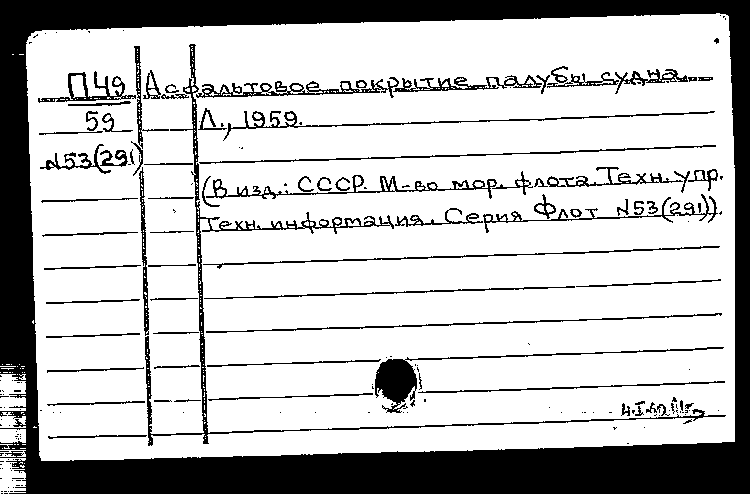 П49 Асфальтовое покрытие палубы судна.
59 Л., 1959.
N53(291)
(В изд.: СССР. М-во мор. флота. Техн. упр.
Техн. информация. Серия Флот N53(291)).